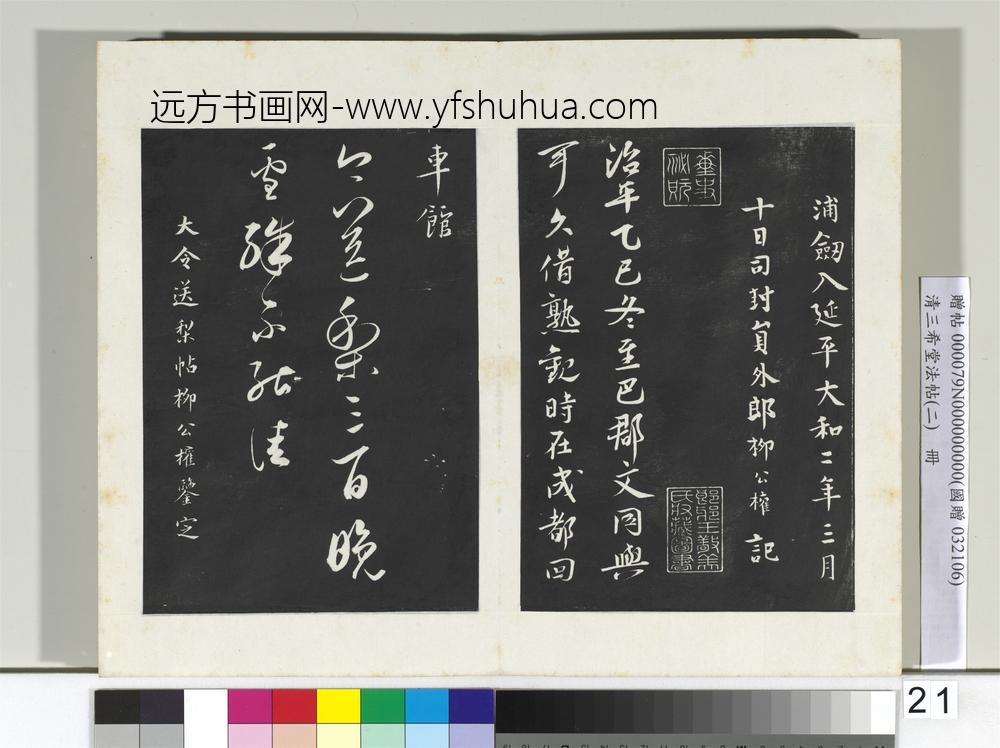 远方书画网-www.yfshuhua.com
浦劒入延平大和二年三月
十日司封員外郎柳公權記
治平乙巳冬至巴郡文同與
可久借熟觀時在成都回
車館
今送梨三百晚
雪殊不能佳
大令送梨帖柳公權鑒定
贈帖 000079N000000000(國贈 032106)
清三希堂法帖(二) 冊
21